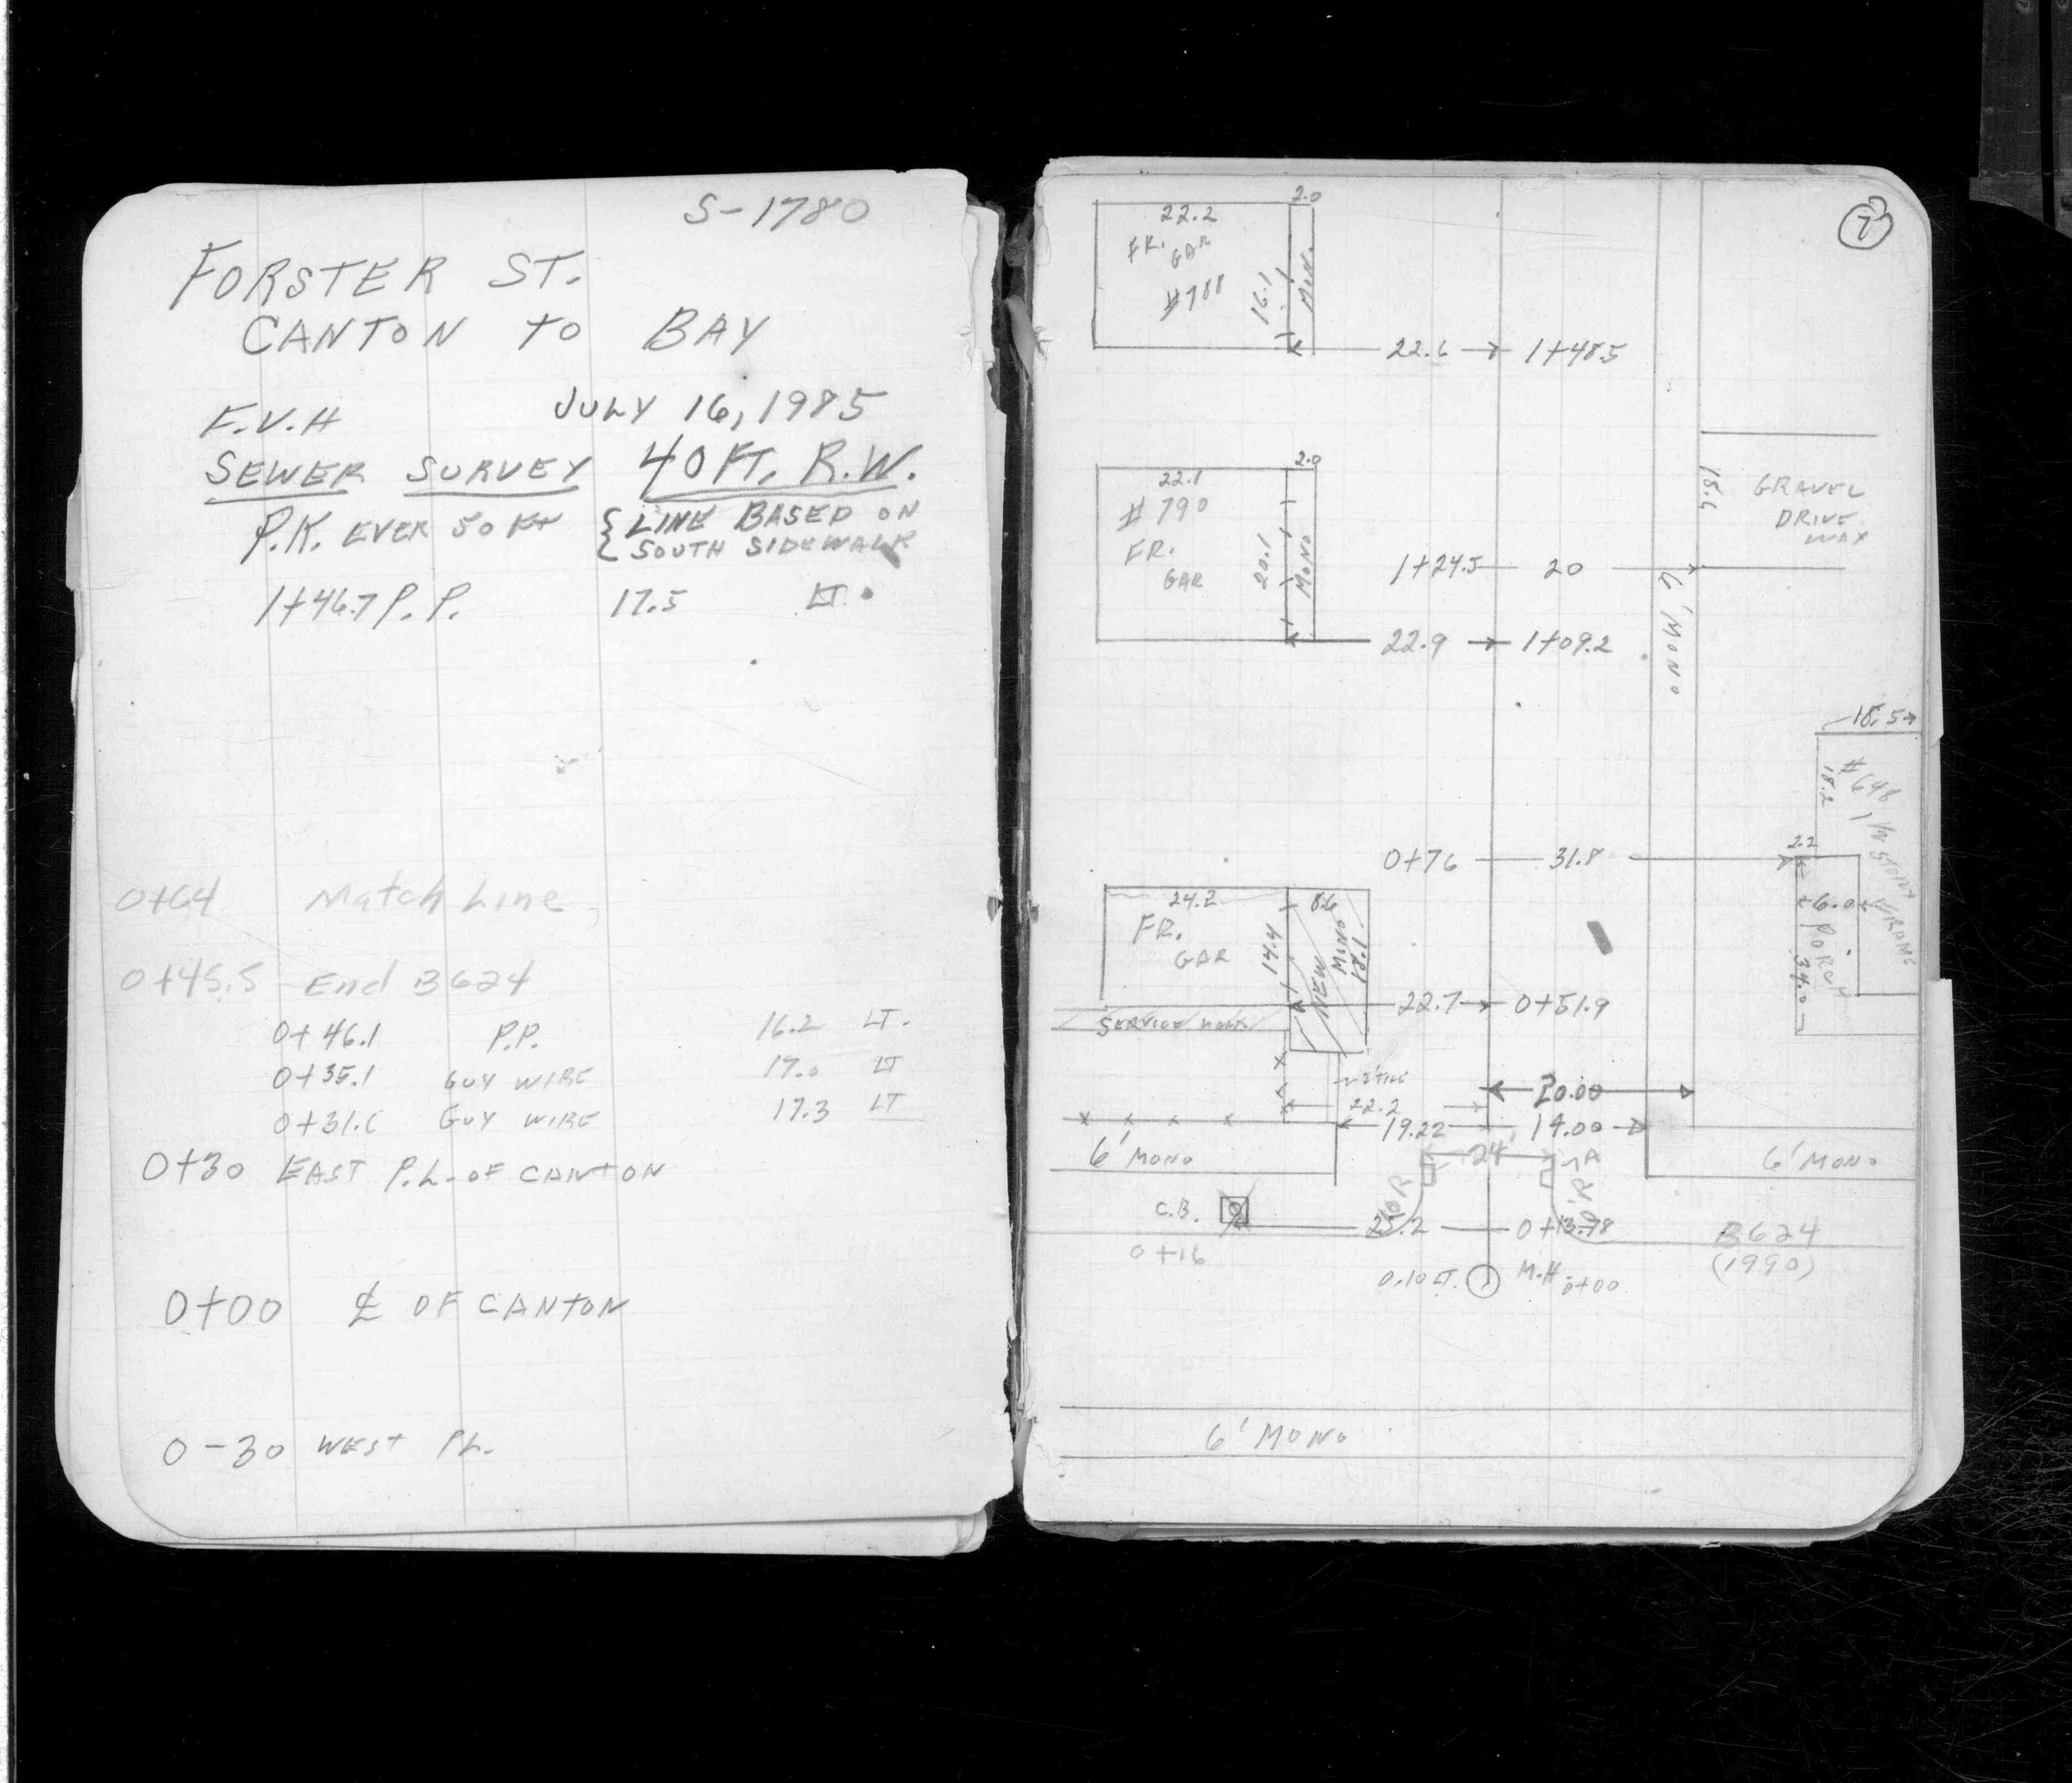 S-1780
FORSTER ST.
CANTON TO BAY
F.V.H JULY 16, 1985
SEWER SURVEY 40 FT. R.W.
P.K. EVER 50 Ft { LINE BASED ON
SOUTH SIDEWALK
1+46.7 P.P. 17.5 LT.
0+64 Match Line
0+45.5 End B624
0+46.1 P.P. 16.2 LT.
0+35.1 GUY WIRE 17.0 LT
0+31.6 GUY WIRE 17.3 LT
0+30 EAST P.L. OF CANTON
0+00 ℄ OF CANTON
0-30 WEST PL.
7
22.2 2.0
FR. GAR
#788
16.1 MON.
22.6 1+48.5
22.1 2.0
#790
FR.
GAR
20.1 MONO
18.6
GRAVEL
DRIVE
WAY
1+24.5 20
6' MONO
22.9 1+09.2
18.5
#648
18.2
1 1/2 STORY
FRAME
0+76 31.8 2.2
6.0
PORCH
34.0
24.2 8.6
FR.
GAR
14.4
NEW MONO
18.1
22.7 0+51.9
SERVICE WALK
20.00
22.2
19.22 14.00
6' MONO
24'
6' MONO
10R
C.B.
25.2 0+13.78
0+16
B624
(1990)
0.10 LT. M.H. 0+00
6' MONO